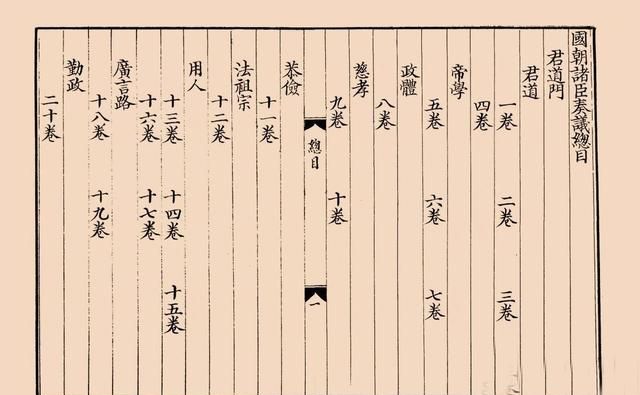 國朝諸臣奏議總目
君道門
君道
一卷 二卷 三卷
四卷
帝學
五卷 六卷 七卷
政體
八卷
慈孝
九卷 十卷
總目 一
恭儉
十一卷
法祖宗
十二卷
用人
十三卷 十四卷 十五卷
十六卷 十七卷
廣言路
十八卷 十九卷
勤政
二十卷